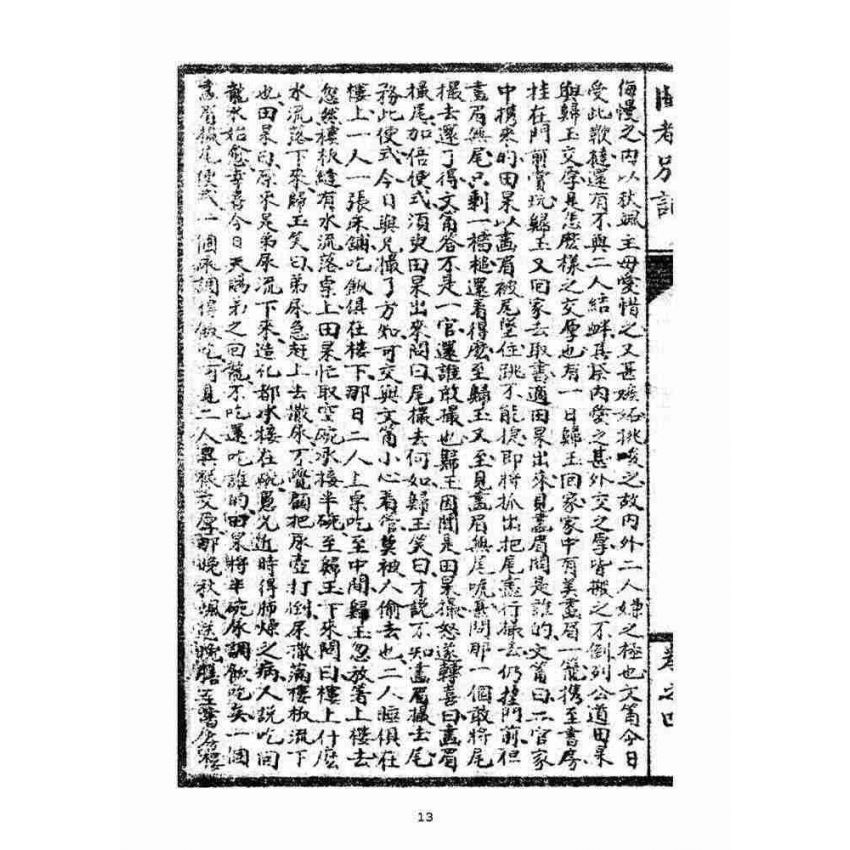 閩都別記
卷之四
侮慢之內以秋颯主母愛惜之又甚嫉妬挑唆之故內外二人嫌之極也文筩今日
受此歡撻還有不與二人結衅其撲內愛之甚外交之厚皆搬之不倒列公道田杲
與歸玉交厚是怎麼樣之交厚也有一日歸玉回家家中有美畫眉一籠携至書房
挂在門前賞玩歸玉又回家去取書適田杲出來見畫眉問是誰的文筩曰二官家
中携來的田杲以畫眉被尾墜住跳才能換即將抓出把尾盡行撮去仍挂門前但
畫眉無尾只剩一橋槌還看得麼至歸玉又至見畫眉無尾唬甚問那一個敢將尾
撮去還了得文筩答不是一官還誰敢撮也歸玉因聞是田杲撮怒遂轉喜曰畫眉
撮尾加倍便式須臾田杲出來問曰尾撮去何如歸玉笑曰才說不知畫眉撮去尾
務此便式今日與兄撮了方知可交與文筩小心看管莫被人偷去也二人睡俱在
樓上一人一張床舖吃飯俱在樓下那日二人上桌吃至中間歸玉忽放箸上樓去
忽然樓板縫有水流落桌上田杲忙取空碗承接半碗至歸玉下來問曰樓上什麼
水流落下來歸玉笑曰弟尿急赶上去撒尿不覺翻把尿壺打倒尿撒滿樓板流下
也田杲曰原來是弟尿流下來造化都承接在碗愚兄近時得肺燥之病人說吃回
龍水始愈幸喜今日天賜弟之回龍不吃還吃誰的田杲將半碗尿調飲吃矣一個
畫眉撮尾便式一個尿調傳飯吃可見二人異樣交厚那晚秋颯送晚膳至書房樓
13